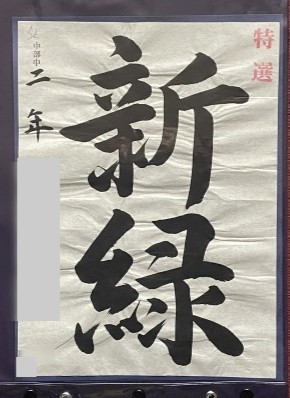 特選
新緑
中部中
二年